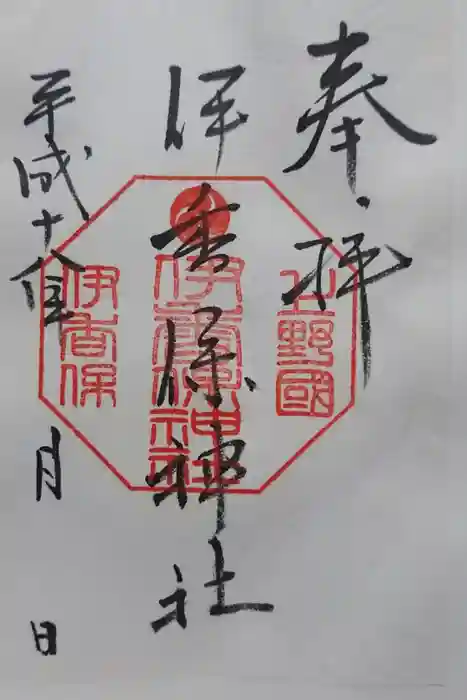 奉拝
上野國
伊香保神社
伊香保神社
伊香保
平成十八年
月
日